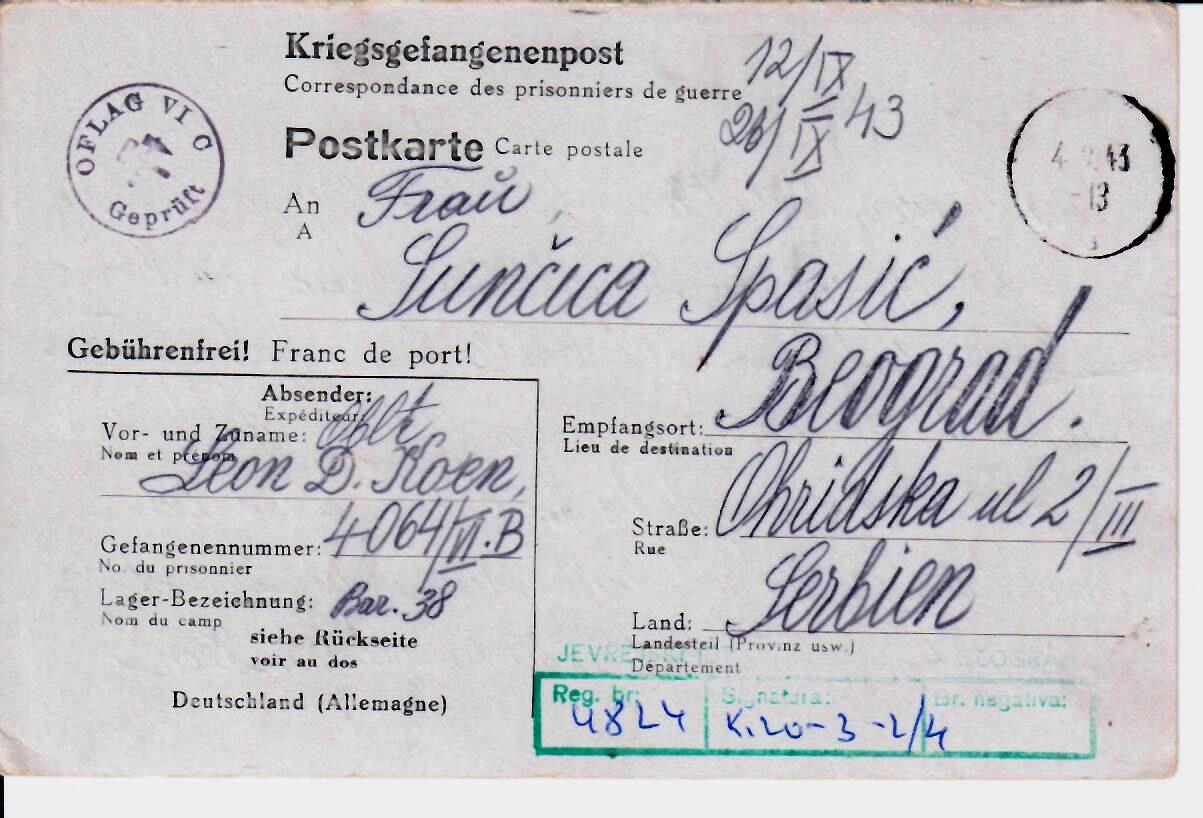 Kriegsgefangenenpost
Correspondance des prisonniers de guerre
12/IX
26/IX 43
OFLAG VI C
Geprüft
Postkarte Carte postale
43
-13
An Frau,
A
Sunčica Spasić,
Gebührenfrei! Franc de port!
Absender:
Expéditeur:
Vor- und Zuname: Oblt
Nom et prénom
Leon D. Koen,
Gefangenennummer: 4064/VI.B
No. du prisonnier
Lager-Bezeichnung: Bar. 38
Nom du camp
siehe Rückseite
voir au dos
Deutschland (Allemagne)
Empfangsort: Beograd.
Lieu de destination
Straße: Ohridska ul 2/III
Rue
Land: Serbien
Landesteil (Provinz usw.)
Département
Reg. br: 4824
Signatura: K.20-3-2/4
Br. negativa: